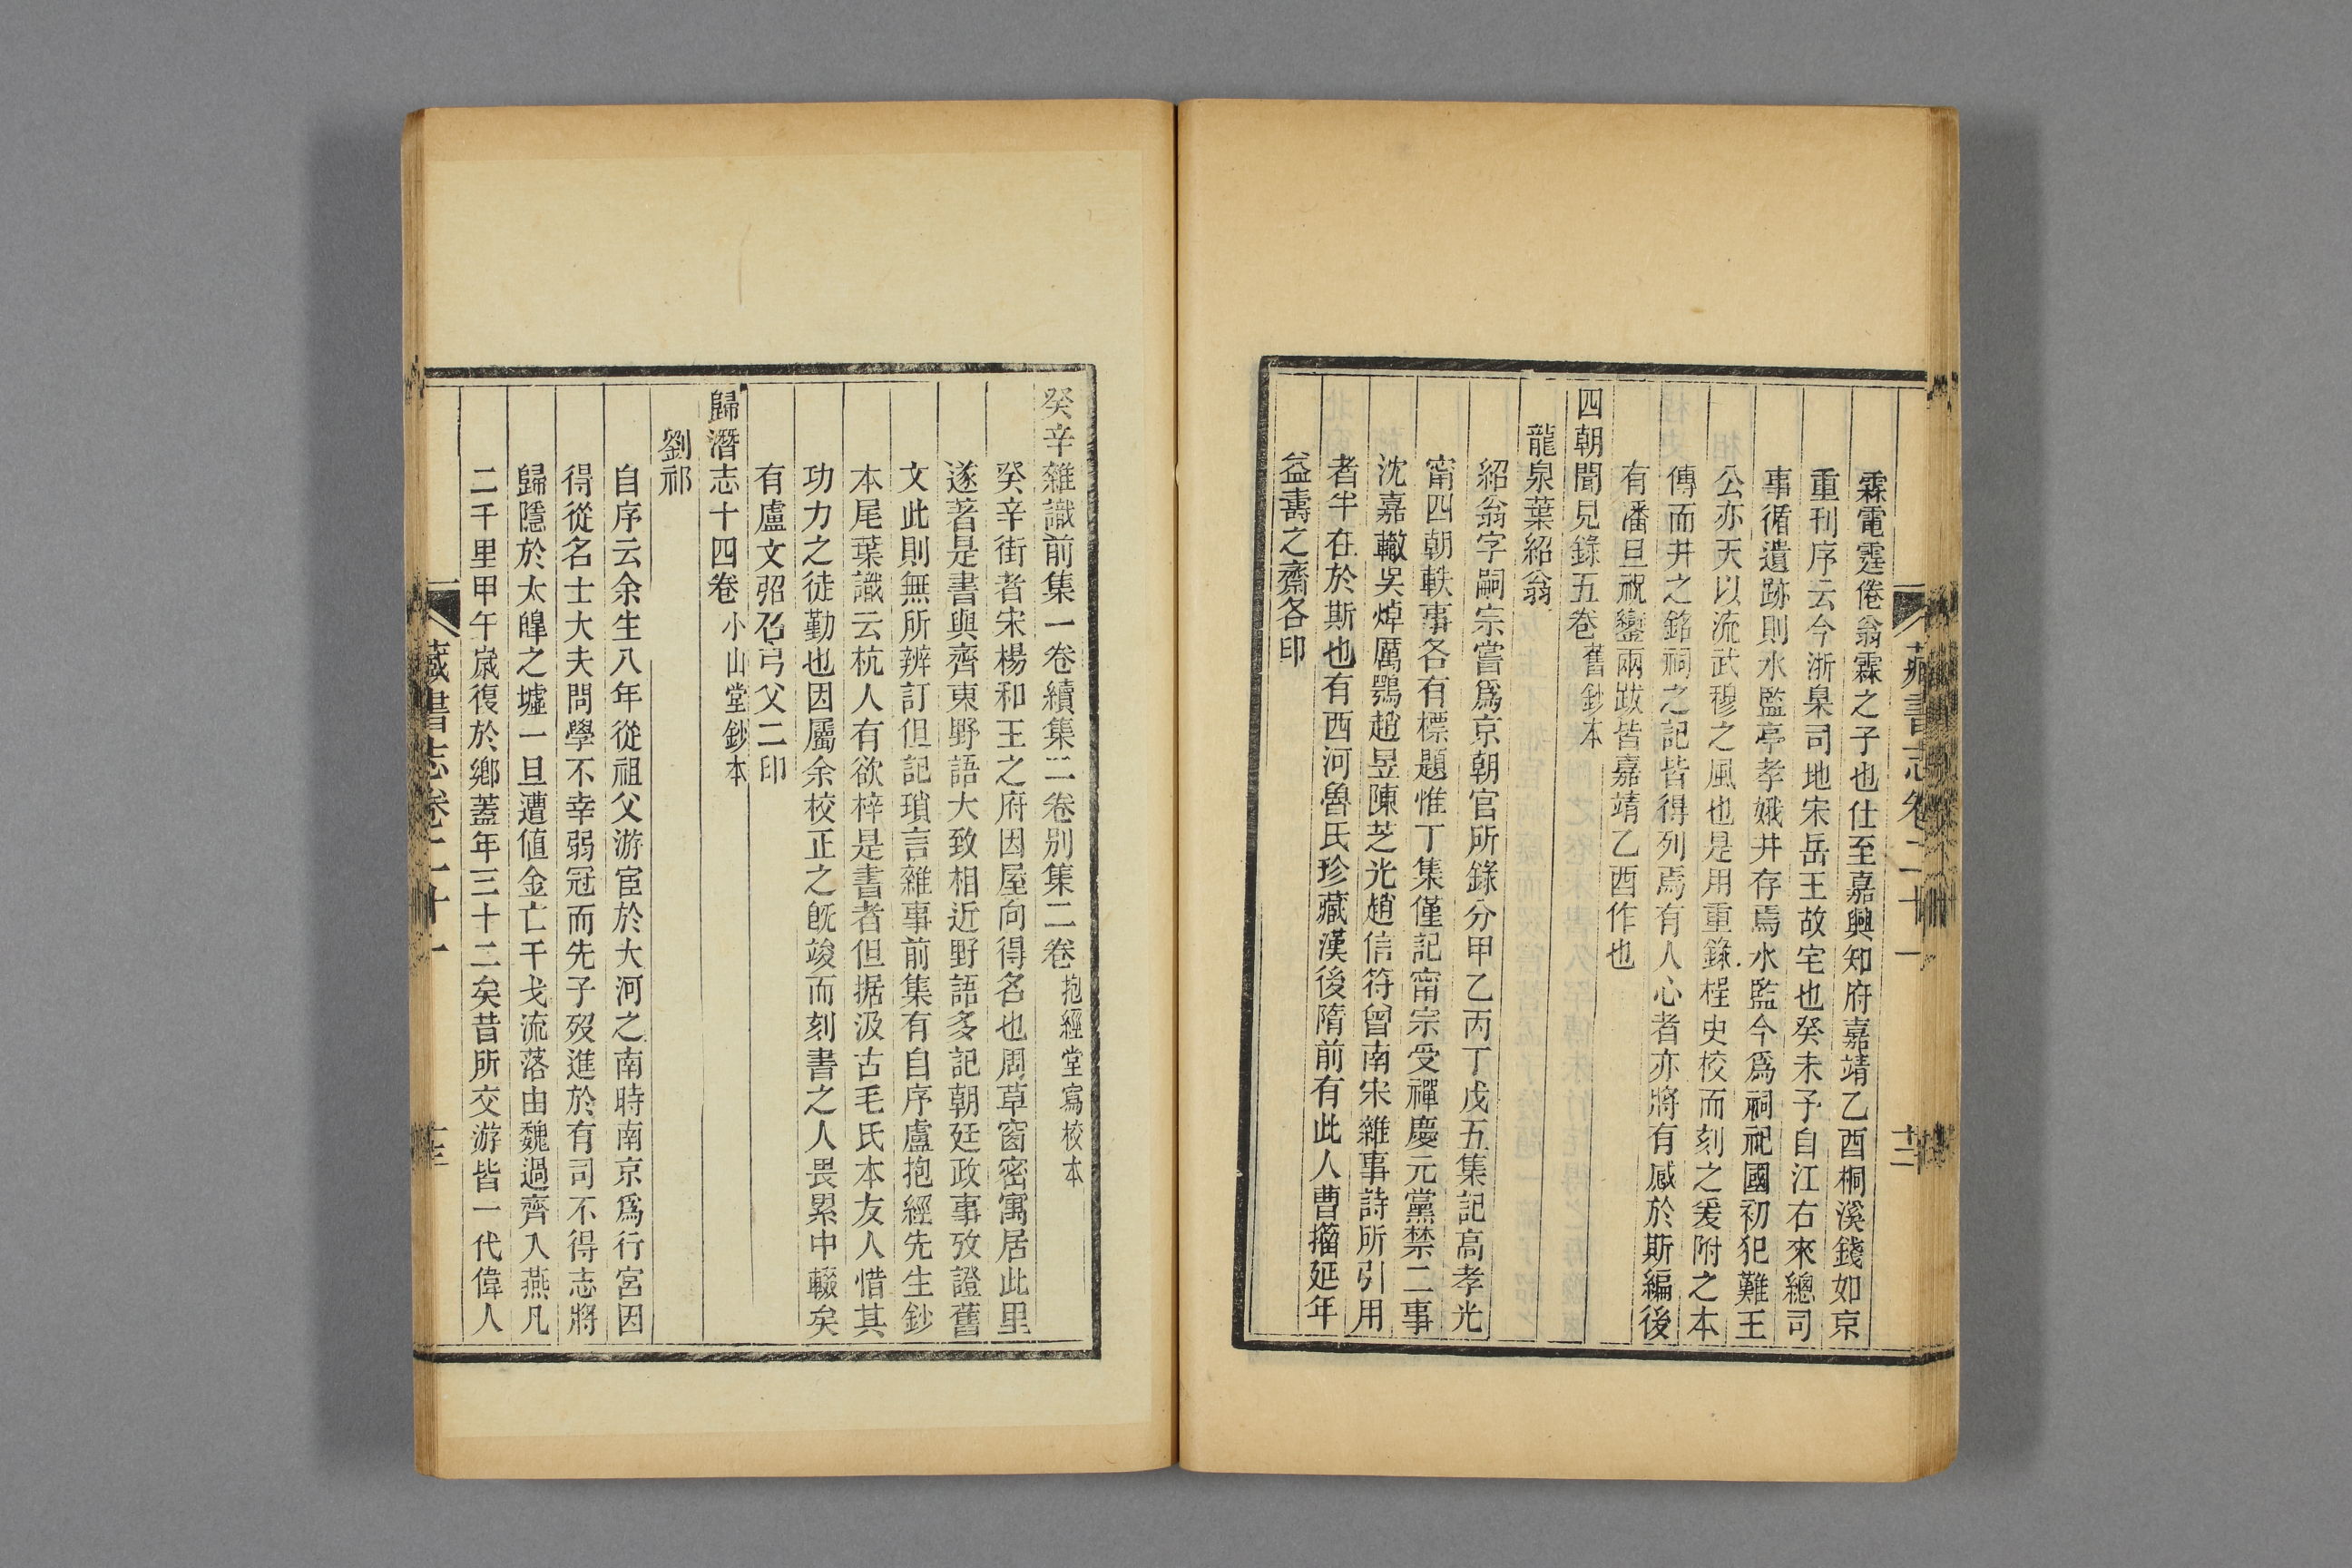 霖電霆倦翁霖之子也仕至嘉興知府嘉靖乙酉桐溪錢如京
重刊序云今浙臬司地宋岳王故宅也癸未予自江右來總司
事循遺跡則水監亭孝娥井存焉水監今爲祠祀國初犯難王
公亦天以流武穆之風也是用重錄桯史校而刻之爰附之本
傳而井之銘祠之記皆得列焉有人心者亦將有感於斯編後
有潘旦祝鑾兩跋皆嘉靖乙酉作也
四朝聞見錄五卷 舊鈔本
龍泉葉紹翁
紹翁字嗣宗嘗爲京朝官所錄分甲乙丙丁戊五集記高孝光
甯四朝軼事各有標題惟丁集僅記甯宗受禪慶元黨禁二事
沈嘉轍吳焯厲鶚趙昱陳芝光趙信符曾南宋雜事詩所引用
者半在於斯也有西河魯氏珍藏漢後隋前有此人曹㩅延年
益壽之齋各印
藏書志卷二十一 十二
癸辛雜識前集一卷續集二卷別集二卷 抱經堂寫校本
癸辛街者宋楊和王之府因屋向得名也周草窗密寓居此里
遂著是書與齊東野語大致相近野語多記朝廷政事攷證舊
文此則無所辨訂但記瑣言雜事前集有自序盧抱經先生鈔
本尾葉識云杭人有欲梓是書者但据汲古毛氏本友人惜其
功力之徒勤也因屬余校正之旣竣而刻書之人畏累中輟矣
有盧文弨召弓父二印
歸潛志十四卷 小山堂鈔本
劉祁
自序云余生八年從祖父游宦於大河之南時南京爲行宮因
得從名士大夫問學不幸弱冠而先子歿進於有司不得志將
歸隱於太皥之墟一旦遭值金亡干戈流落由魏過齊入燕凡
二千里甲午歲復於鄉蓋年三十二矣昔所交游皆一代偉人
藏書志卷二十一